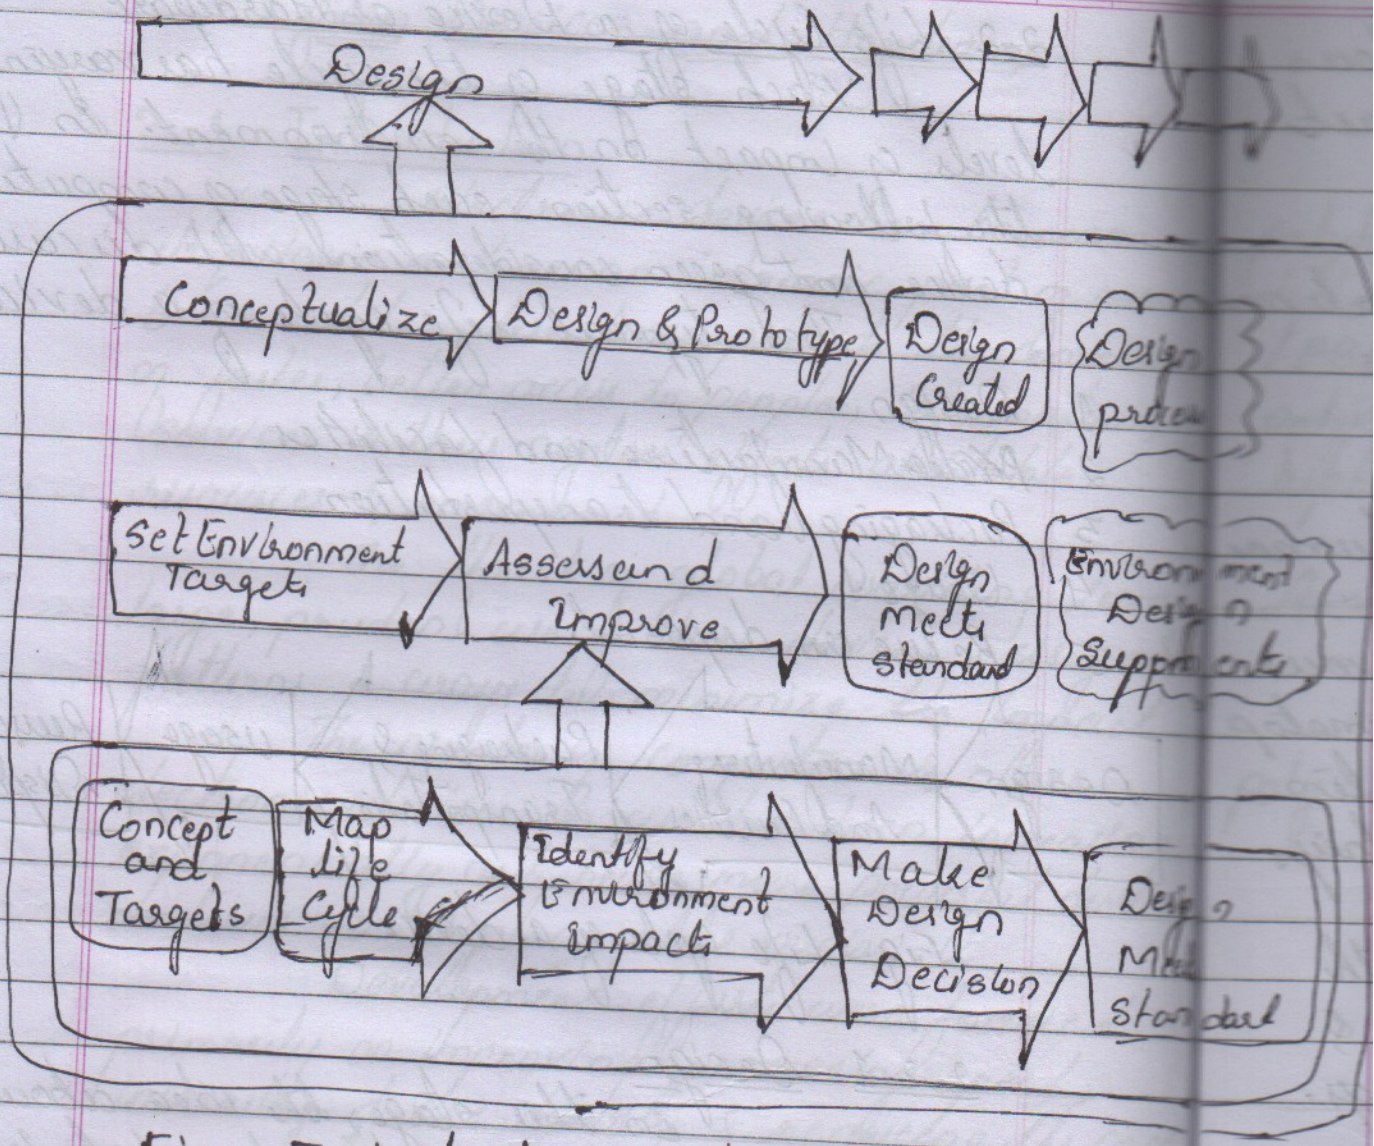 Design
Conceptualize
Design & Prototype
Design
Created
Design
process
Set Environment
Target
Assess and
Improve
Design
Meets
Standard
Environment
Design
Concept
and
Targets
Map
Life
Cycle
Identify
Environment
impacts
Make
Design
Decision
Design
Meets
Standard